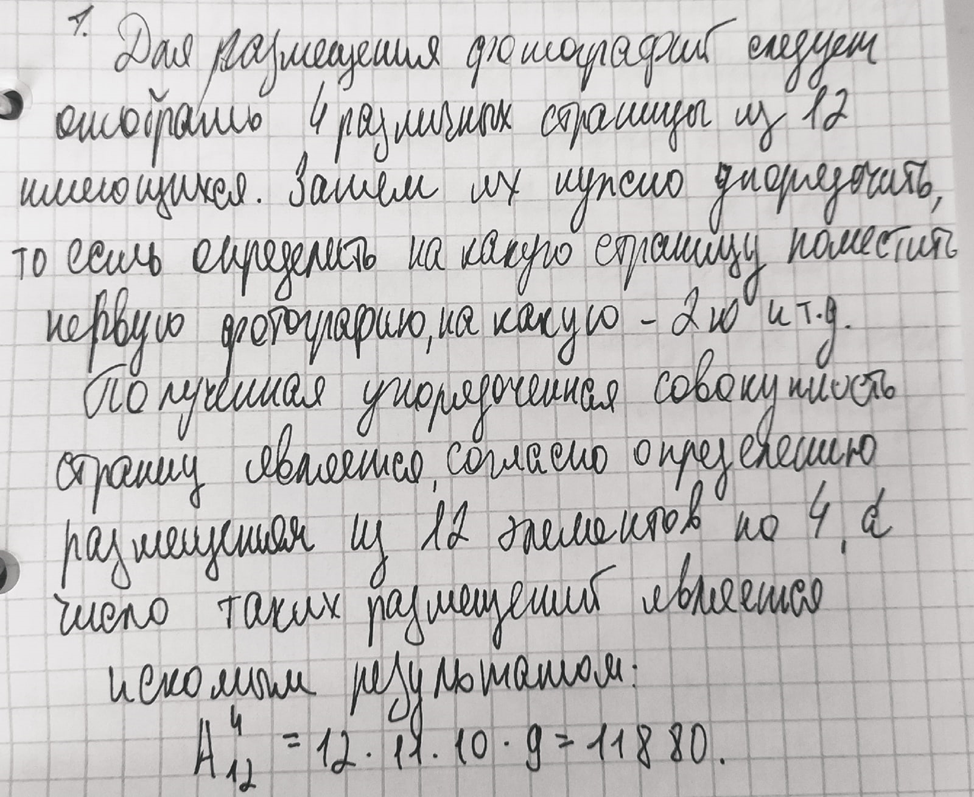 1. Для размещения фотографий следует
отобрать 4 различных страницы из 12
имеющихся. Затем их нужно упорядочить,
то есть определить на какую страницу поместить
первую фотографию, на какую - 2ю и т.д.
Полученная упорядоченная совокупность
страниц является, согласно определению
размещения из 12 элементов по 4, а
число таких размещений является
искомым результатом:
A⁴₁₂ = 12 · 11 · 10 · 9 = 11880.